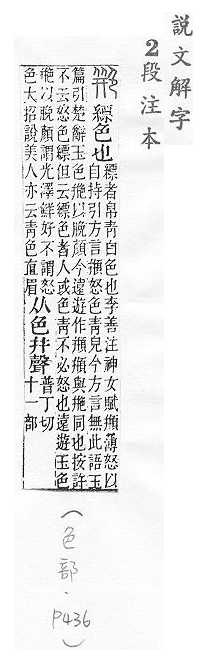 說文解字
2段注本
艵 縹色也 縹者帛青白色也李善注神女賦頩薄怒以
自持引方言頩怒色青皃今方言無此語玉
篇引楚辭玉色艵以脕顏今遠遊作頩頩與艵同也按許
不云怒色縹但云縹色者人或色青不必怒也遠遊玉色
艵以脕顏謂光澤鮮好不謂怒
色大招說美人亦云青色直眉
从色幷聲 普丁切
十一部
(色部·P436)